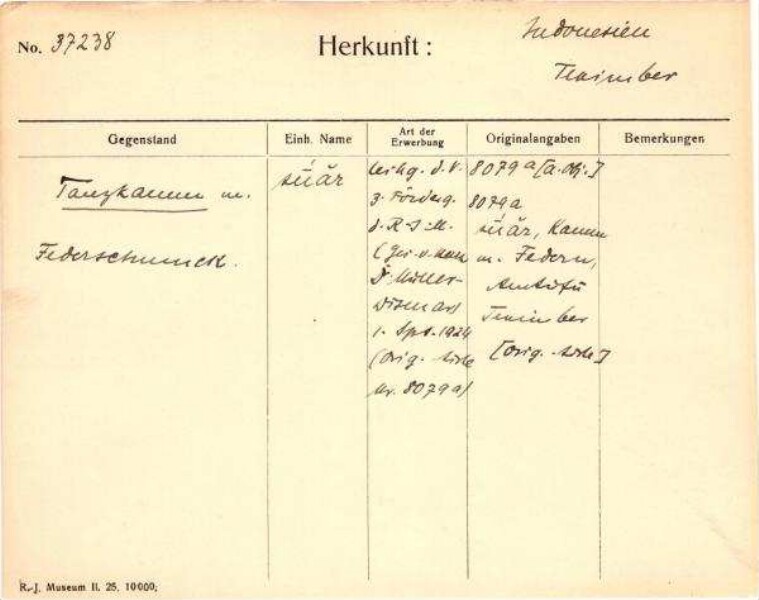 No. 37238
Herkunft:
Indonesien
Tenimber
Gegenstand
Einh. Name
Art der Erwerbung
Originalangaben
Bemerkungen
Tanzkamm m.
Federschmuck.
súăr
Leihg. d. V.
z. Förderg.
d. R-J-M.
(Ges. v.
Dr. Müller-
Wismar)
1. Spt. 1924
(Orig.
Nr. 8079a)
8079a [a. Obj.]
8079a
súăr, Kamm
m. Federn,
Amtufu
Tenimber
[Orig. Liste]
R.-J. Museum II. 25. 10000;